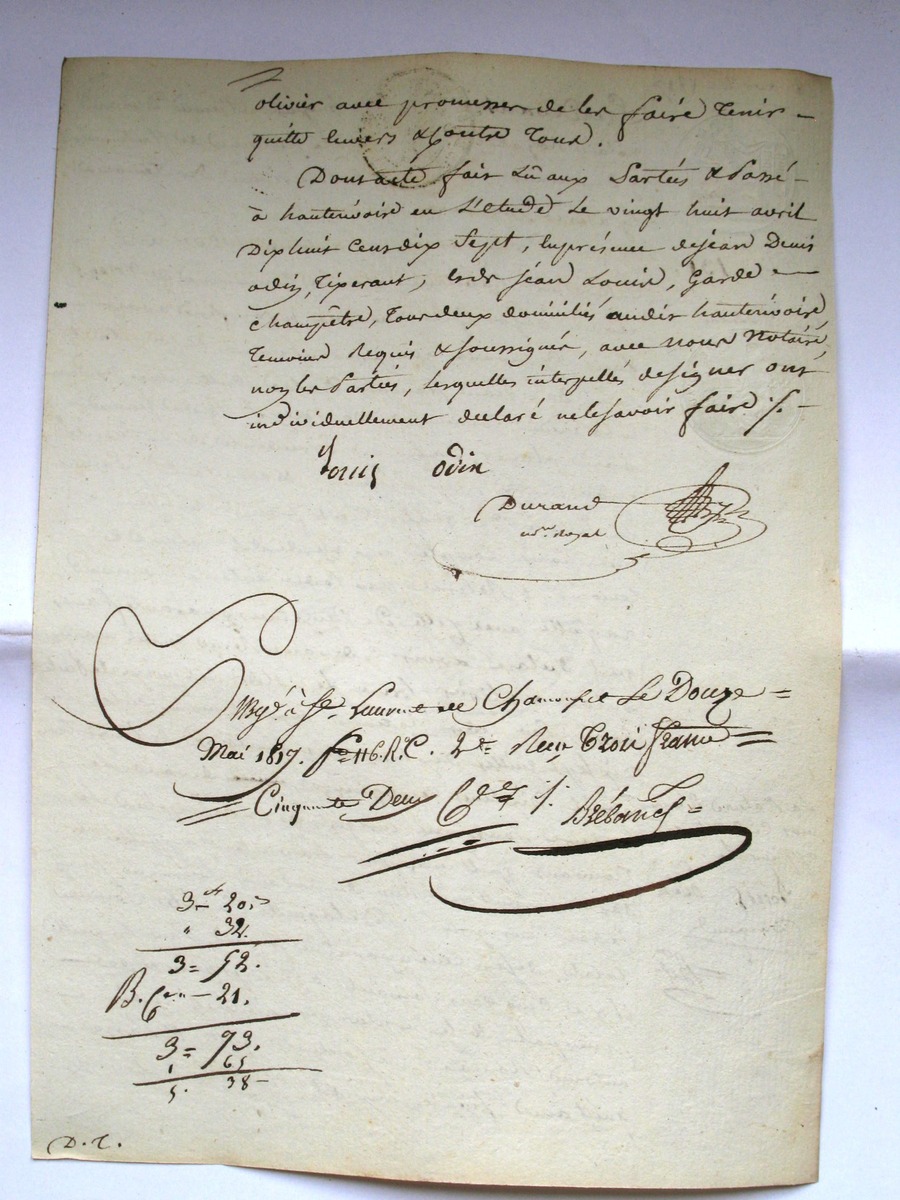 olivier avec promesses de les faire Tenir
quitte Envers & Contre Tous.
Dont acte fait Lû aux Parties & Passé
à hauterivoire en L'etude Le vingt huit avril
Dixhuit Cent dix Sept, En présence de jean Denis
odin, Tixerant, et de jean Louis, Garde
champêtre, Tous deux domiciliés audit hauterivoire
Temoins Requis & soussignés, avec nous Notaire,
non les Parties, Lesquelles interpellés de signer ont
individuellement declaré ne le savoir faire ./. 
Louis odin
Durand
nre. Royal
Enregé. à St. Laurent de Chamousset Le Douze
Mai 1817. fo. 116. R. C. 2e. Reçu Trois francs
Cinquante Deux Ces ./.
3 = 20.
" 32.
3 = 52.
B. - 21.
3 = 73.
1 65
5. 38
D. T.